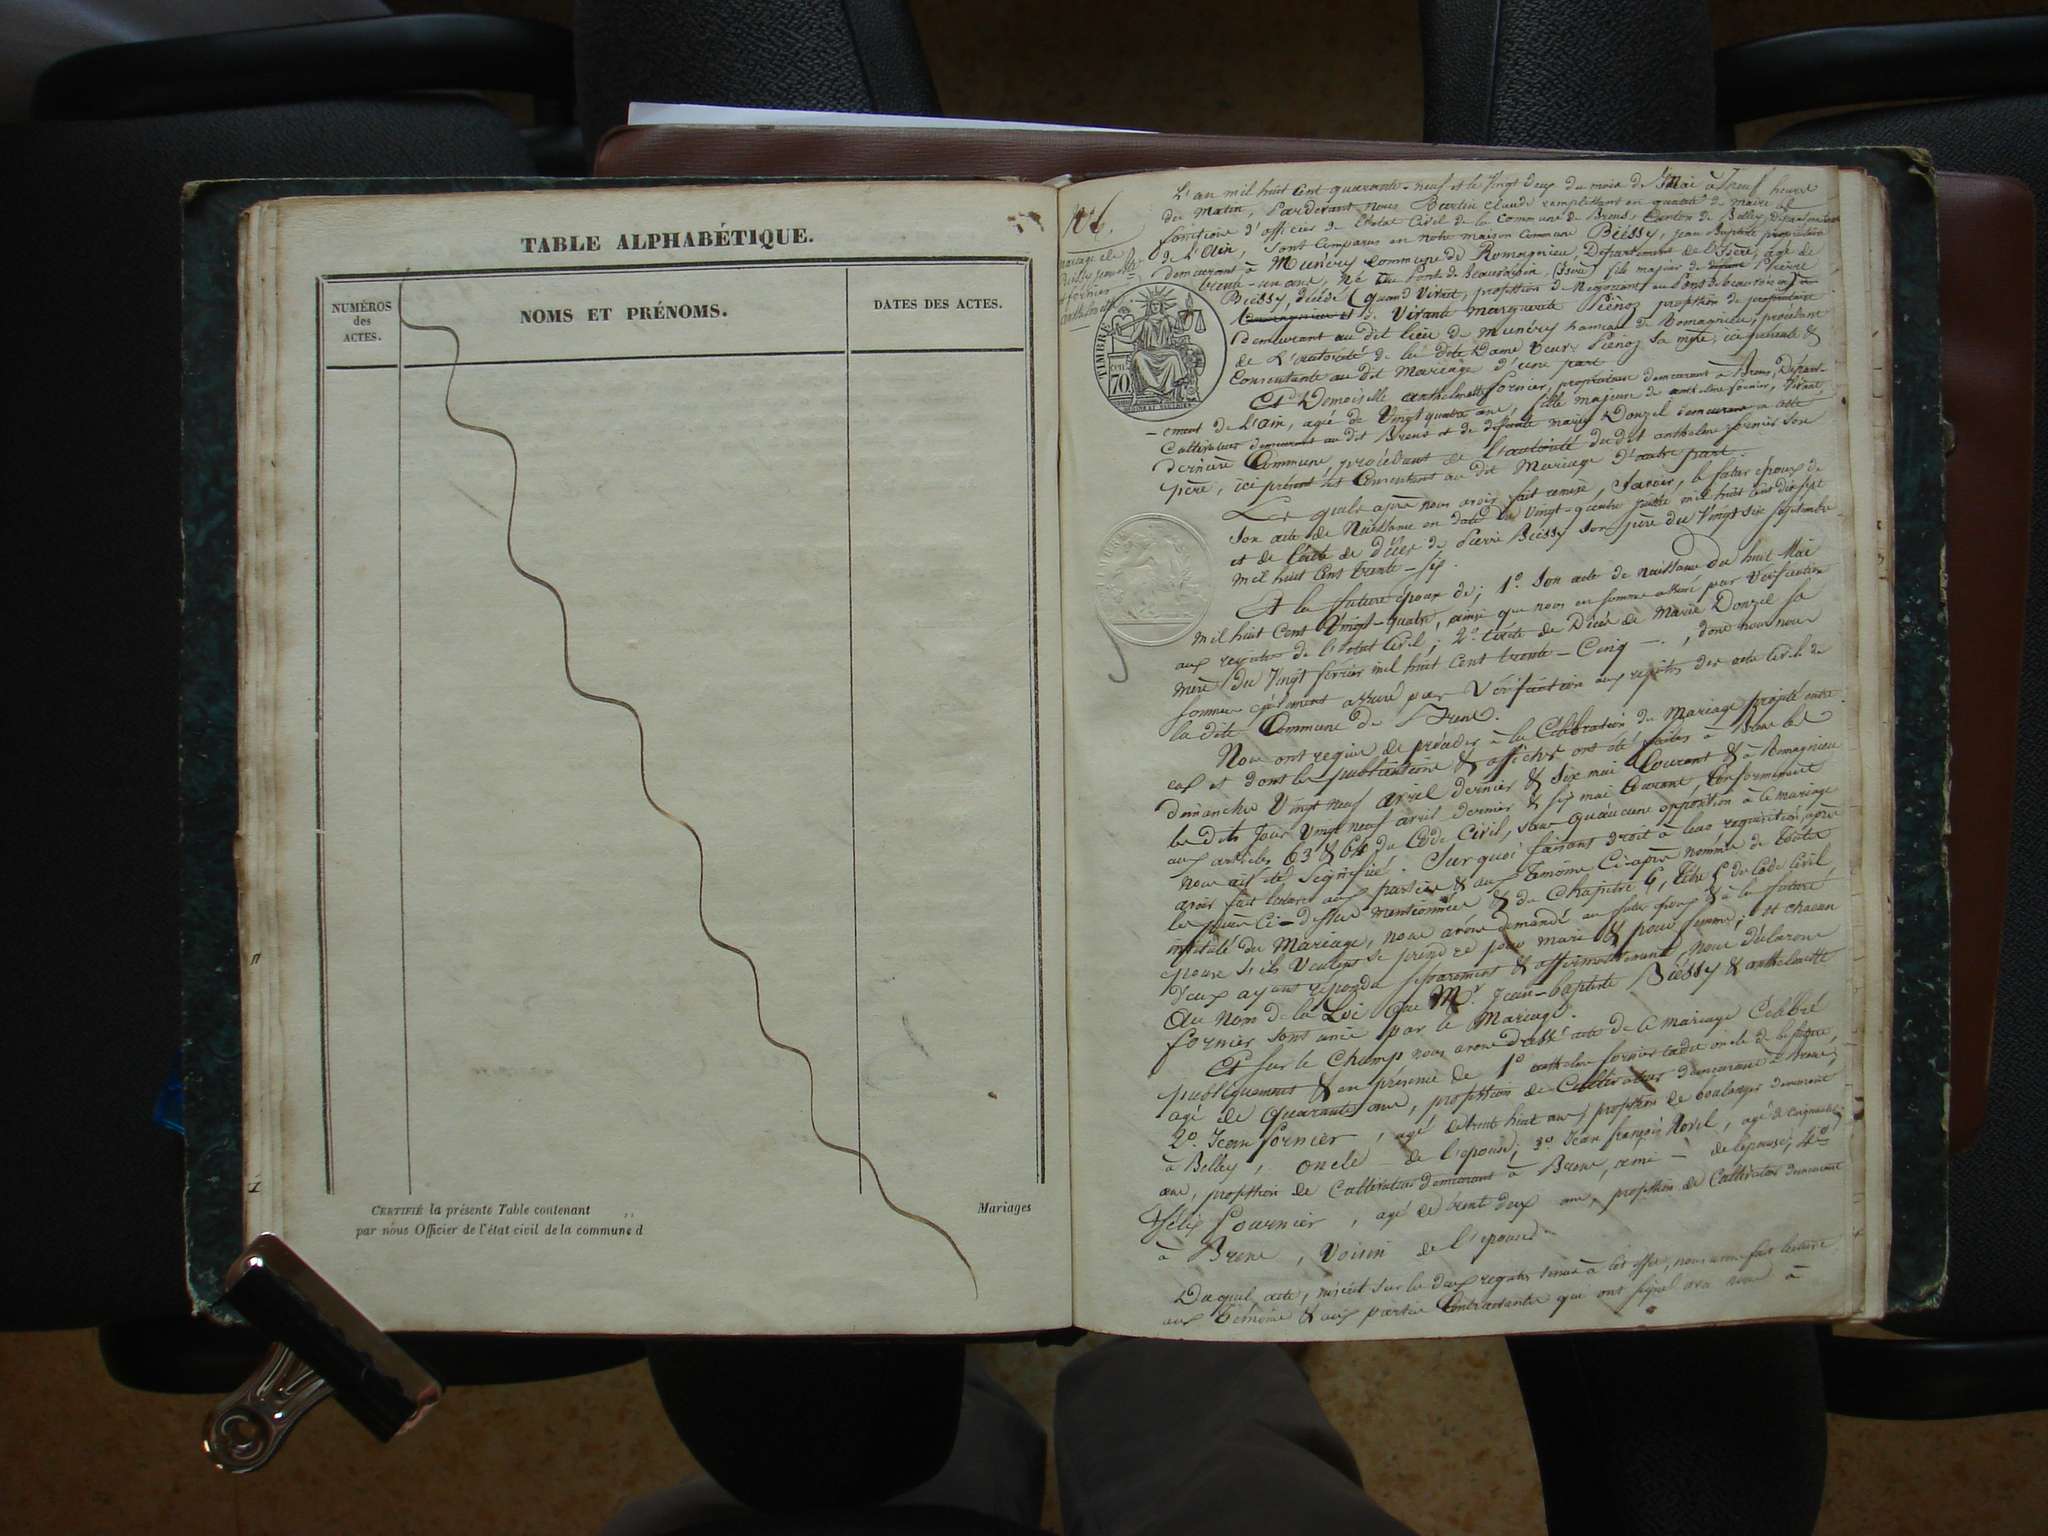 TABLE ALPHABÉTIQUE.
NUMÉROS
des
ACTES.
NOMS ET PRÉNOMS.
DATES DES ACTES.
CERTIFIÉ la présente Table contenant
Mariages
par nous Officier de l'état civil de la commune d
TIMBRE
70
L'an mil huit cent quarante-neuf et le Vingt deux du mois de Mai à Neuf heures
du Matin, Pardevant nous Burtin Claude remplissant en qualité de maire les
fonctions d'officier de l'état Civil de la Commune de Brens, Canton de Belley, département
de L'Ain, sont Comparus en notre maison Commune Biessy, jean Baptiste propriétaire
demeurant à Munéry Commune de Romagnieu, Département de l'Isère, agé de
trente-un ans, né au Pont de Beauvoisin, (Isère) fils majeur de défunt Pierre
Biessy, décédé (quand Vivait, profession de Négociant au Pont de beauvoisin)
et de Vivante Marguerite Piénoz profession de propriétaire
demeurant au dit lieu de Munéry hameau de Romagnieu, procédant
de L'autorité de la dite Dame Veuve Piénoz Sa mère, ici présente &
Consentante au dit Mariage d'une part
Et Demoiselle anthelmette fornier, propriétaire demeurant à Brens, Départ-
-ement de L'Ain, agée de Vingt quatre ans, fille majeure de anthelme fornier, Vivant
Cultivateur demeurant au dit Brens et de défunte marie Donzel demeurant a cette
dernière Commune, procédant de l'autorité du dit anthelme fornier son
père, ici présent et Consentant au dit Mariage d'autre part.
Les quels après nous avoir fait remise, Savoir, le futur époux de
Son acte de Naissance en date du Vingt-quatre juillet mil huit cent dix sept
et de l'acte de décès de Pierre Biessy son père du Vingt six septembre
mil huit Cent trente-six.
Et la future épouse de; 1° Son acte de naissance du huit Mai
mil huit Cent Vingt-quatre, ainsi que nous en sommes assuré par Vérification
aux registres de l'état Civil; 2° l'acte de Décès de Marie Donzel sa
mère du Vingt février mil huit cent trente-Cinq, dont nous nous
sommes également assuré par Vérification aux registres des actes Civils de
la dite Commune de Brens.
Nous ont requis de procéder à la Célébration du Mariage projeté entre
eux et dont les publications & affiches ont été faites à Brens les
dimanches Vingt neuf avril dernier & Six mai Courant & à Romagnieu
les dits Jours Vingt neuf avril dernier & six mai Courant, Conformément
aux articles 63 & 64 du Code Civil, sans qu'aucune opposition à ce mariage
nous ait été Signifié. Sur quoi faisant droit à leur réquisition, après
avoir fait lecture aux parties & aux Témoins Ci-après nommés de toutes
les pièces Ci-dessus mentionnées & du Chapitre 6, Titre 5 du Code Civil
intitulé du Mariage, nous avons demandé au futur époux & à la future
épouse s'ils Veulent se prendre pour mari & pour femme; et chacun
d'eux ayant répondu séparément & affirmativement, nous déclarons
Au Nom de la Loi Que Mr. Jean-baptiste Biessy & anthelmette
fornier sont unis par le Mariage.
Et sur le Champ nous avons dressé acte de ce mariage Célébré
publiquement & en présence de 1° anthelme fornier cadet oncle de l'épouse,
agé de quarante ans, profession de Cultivateur demeurant à Brens;
2° Jean fornier, agé de trente huit ans, profession de boulanger demeurant
à Belley, oncle de l'épouse; 3° Jean françois, agé de cinquante
ans, profession de Cultivateur demeurant à Brens, ami de l'épouse; 4°
Félix fournier, agé de trente deux ans, profession de Cultivateur demeurant
à Brens, Voisin de l'épouse.
Duquel acte, inscrit sur les deux registres tenus à cet effet, nous avons fait lecture
aux témoins & aux parties Contractantes qui ont signé avec nous à